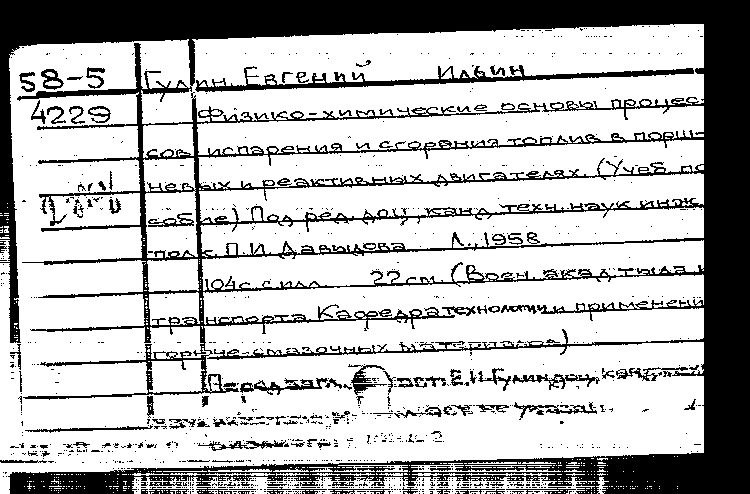 58-5 Гулин, Евгений Ильин
4229 Физико-химические основы процес-
сов испарения и сгорания топлив в порш-
невых и реактивных двигателях. (Учеб. по
собие) Под ред. доц., канд. техн. наук инж.
полк. П.И. Давыдова Л., 1958
104с. с илл. 22см. (Воен. акад. тыла и
транспорта. Кафедра технологии и применени
горюче-смазочных материалов)
Перед загл. авт: Е.И. Гулин доц., канд. техн
не указан.